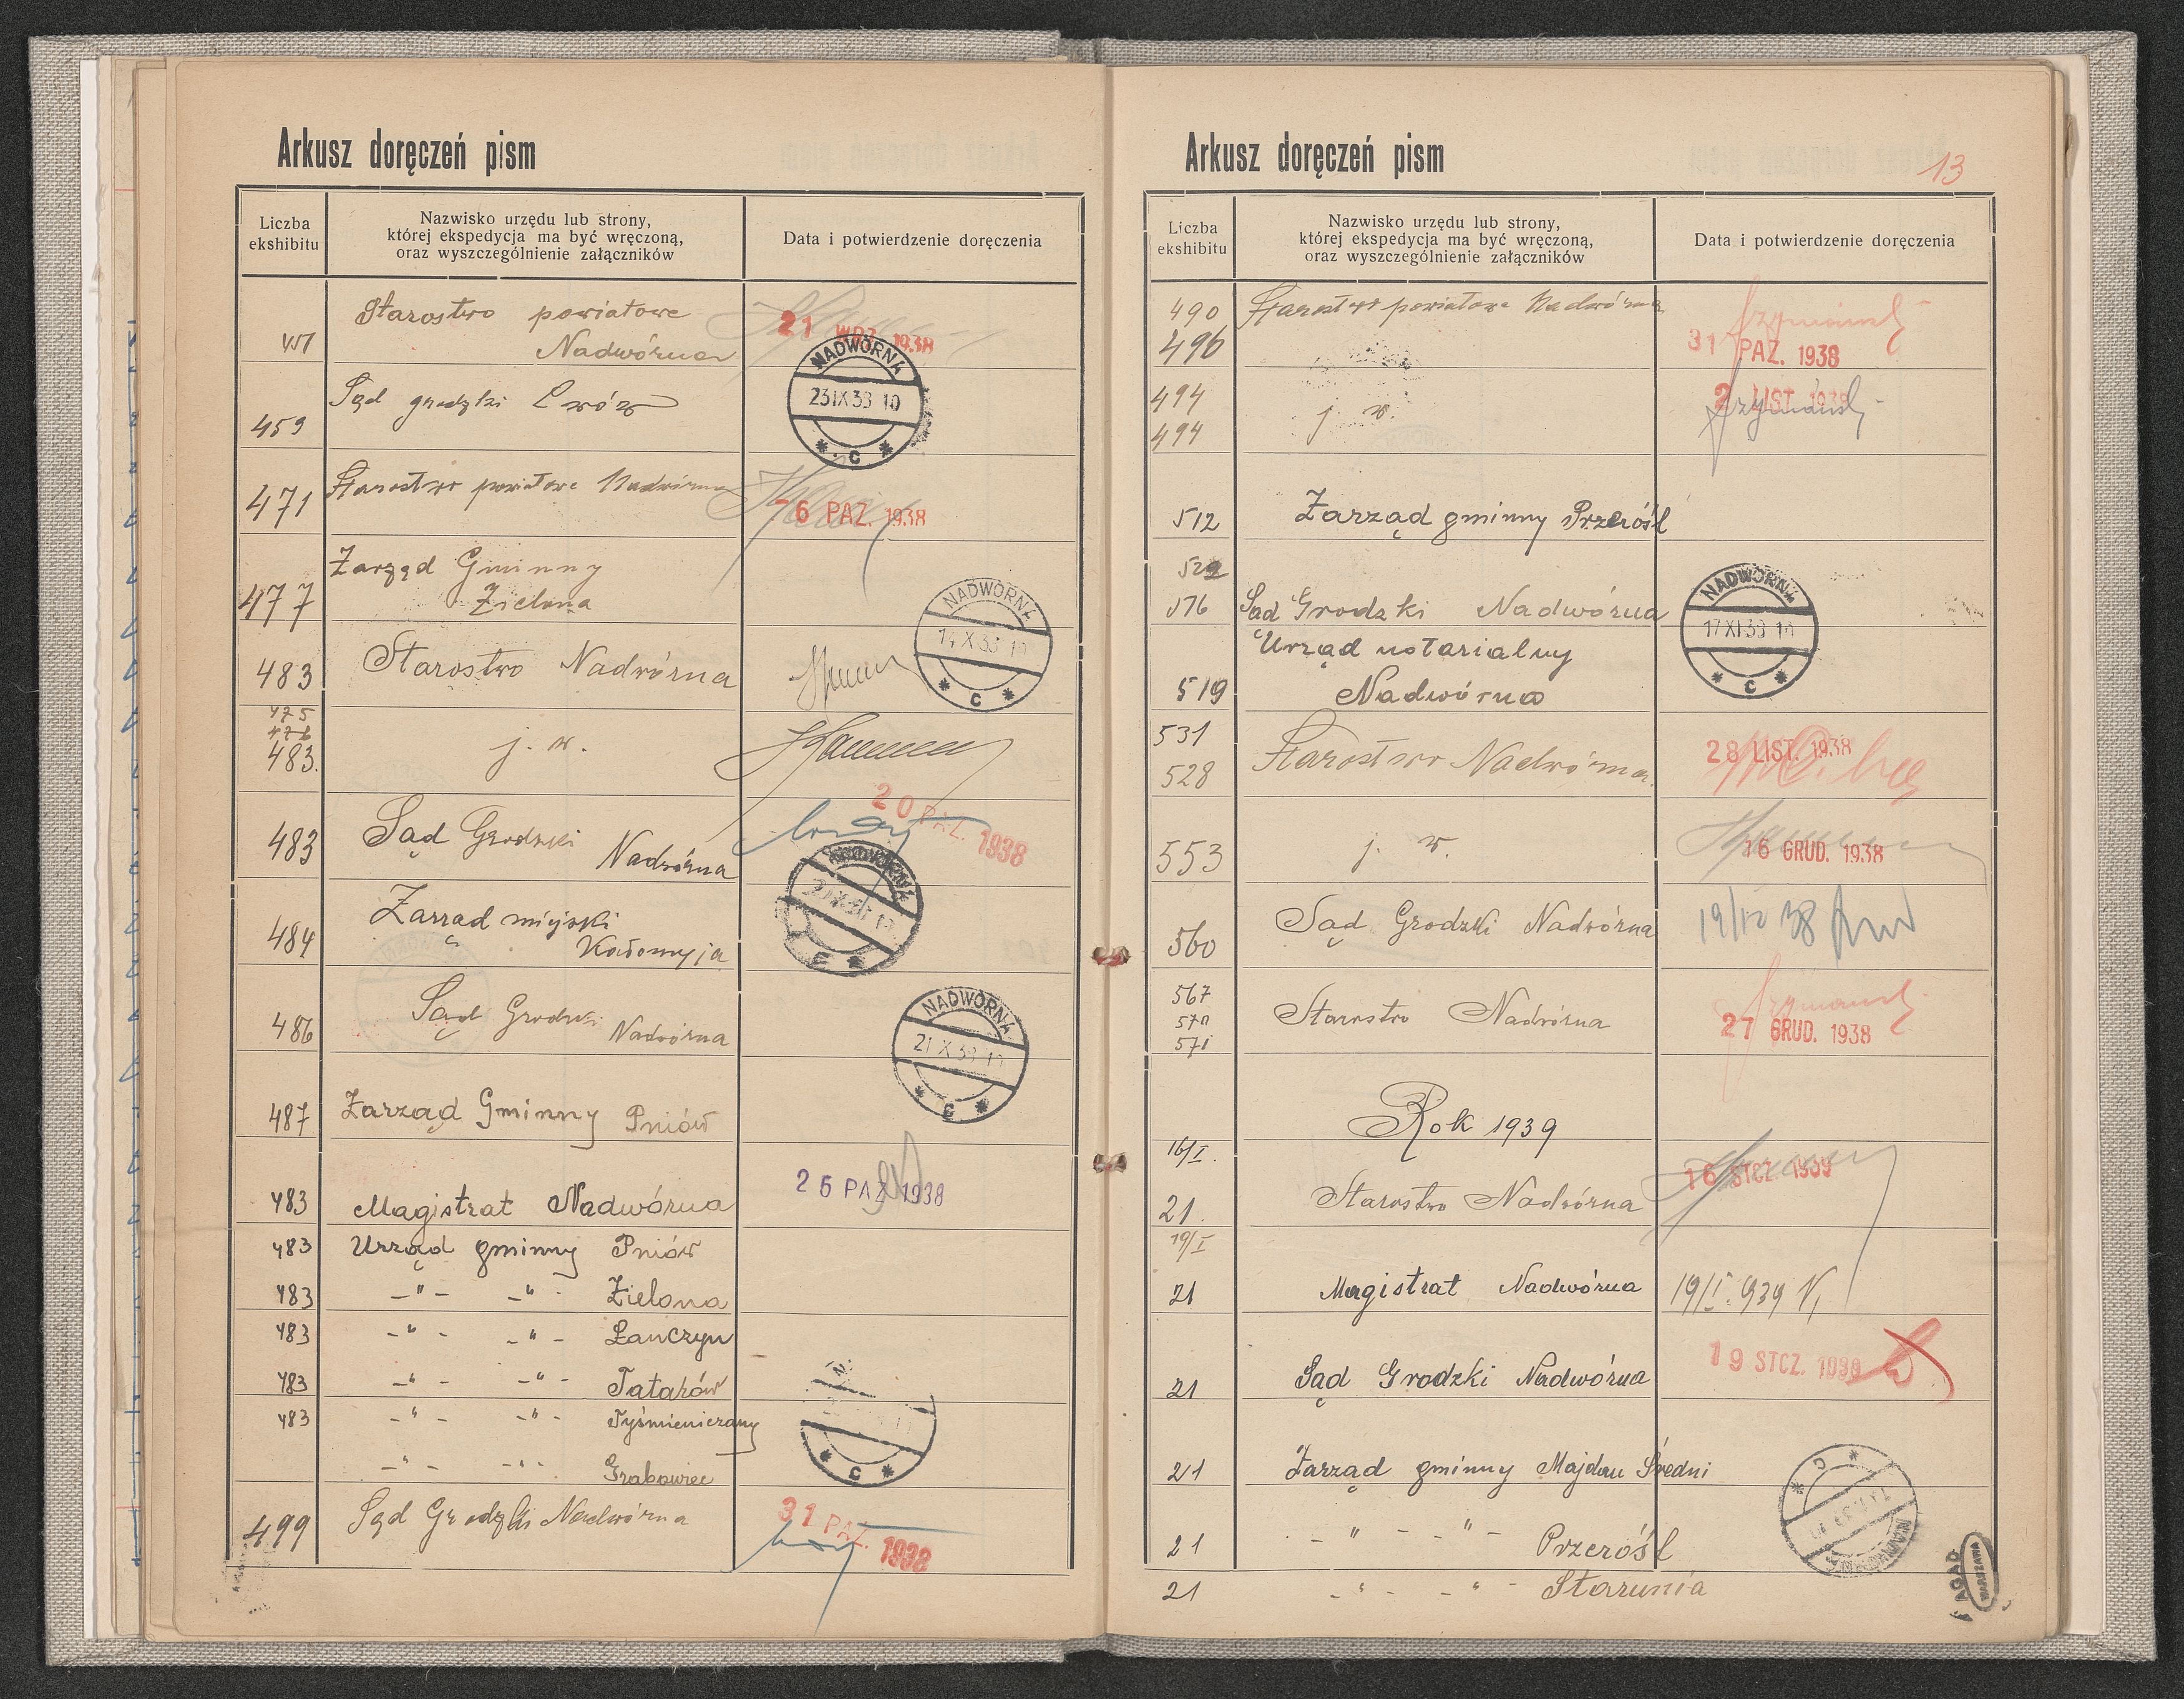 Arkusz doręczeń pism
Liczba
ekshibitu
Nazwisko urzędu lub strony,
której ekspedycja ma być wręczoną,
oraz wyszczególnienie załączników
Data i potwierdzenie doręczenia
Starostwo powiatowe
Nadwórna
21 WRZ. 1938
459 Sąd grodzki Lwów
NADWÓRNA
23 IX 38 10
* C *
471 Starostwo powiatowe Nadwórna 6 PAŹ. 1938
477 Zarząd Gminny
Zielona
NADWÓRNA
14 X 38
* C *
483 Starostwo Nadwórna
475
476
483. j. w.
483 Sąd Grodzki Nadwórna 20 PAŹ. 1938
484 Zarząd miejski
Kołomyja
486 Sąd Grodzki Nadwórna
NADWÓRNA
21 X 38
* C *
487 Zarząd Gminny Pniów
483 Magistrat Nadwórna 25 PAŹ. 1938
483 Urząd gminny Pniów
483 -"- -"- Zielona
483 -"- -"- Łanczyn
483 -"- -"- Tatarów
483 -"- -"- Tyśmieniczany
-"- -"- Grabowiec
* C *
499 Sąd Grodzki Nadwórna 31 PAŹ. 1938
Arkusz doręczeń pism
13
Liczba
ekshibitu
Nazwisko urzędu lub strony,
której ekspedycja ma być wręczoną,
oraz wyszczególnienie załączników
Data i potwierdzenie doręczenia
490 Starostwo powiatowe Nadwórna
496 31 PAŹ. 1938
494 j. w. 2 LIST. 1938
494
512 Zarząd gminny Przerośl
576 Sąd Grodzki Nadwórna
NADWÓRNA
17 XI 38 10
* C *
Urząd notarialny
519 Nadwórna
531
528 Starostwo Nadwórna 28 LIST. 1938
553 j. w. 16 GRUD. 1938
560 Sąd Grodzki Nadwórna 19/12 38
567
570
571
Starostwo Nadwórna 27 GRUD. 1938
Rok 1939
16/I.
21. Starostwo Nadwórna 16 STCZ. 1939
19/I
21 Magistrat Nadwórna 19/I. 939
21 Sąd Grodzki Nadwórna 19 STCZ. 1939
21 Zarząd gminny Majdan Średni
21 -"- -"- Przerośl
21 -"- -"- Starunia
NADWÓRNA
* C *
AGAD
WARSZAWA